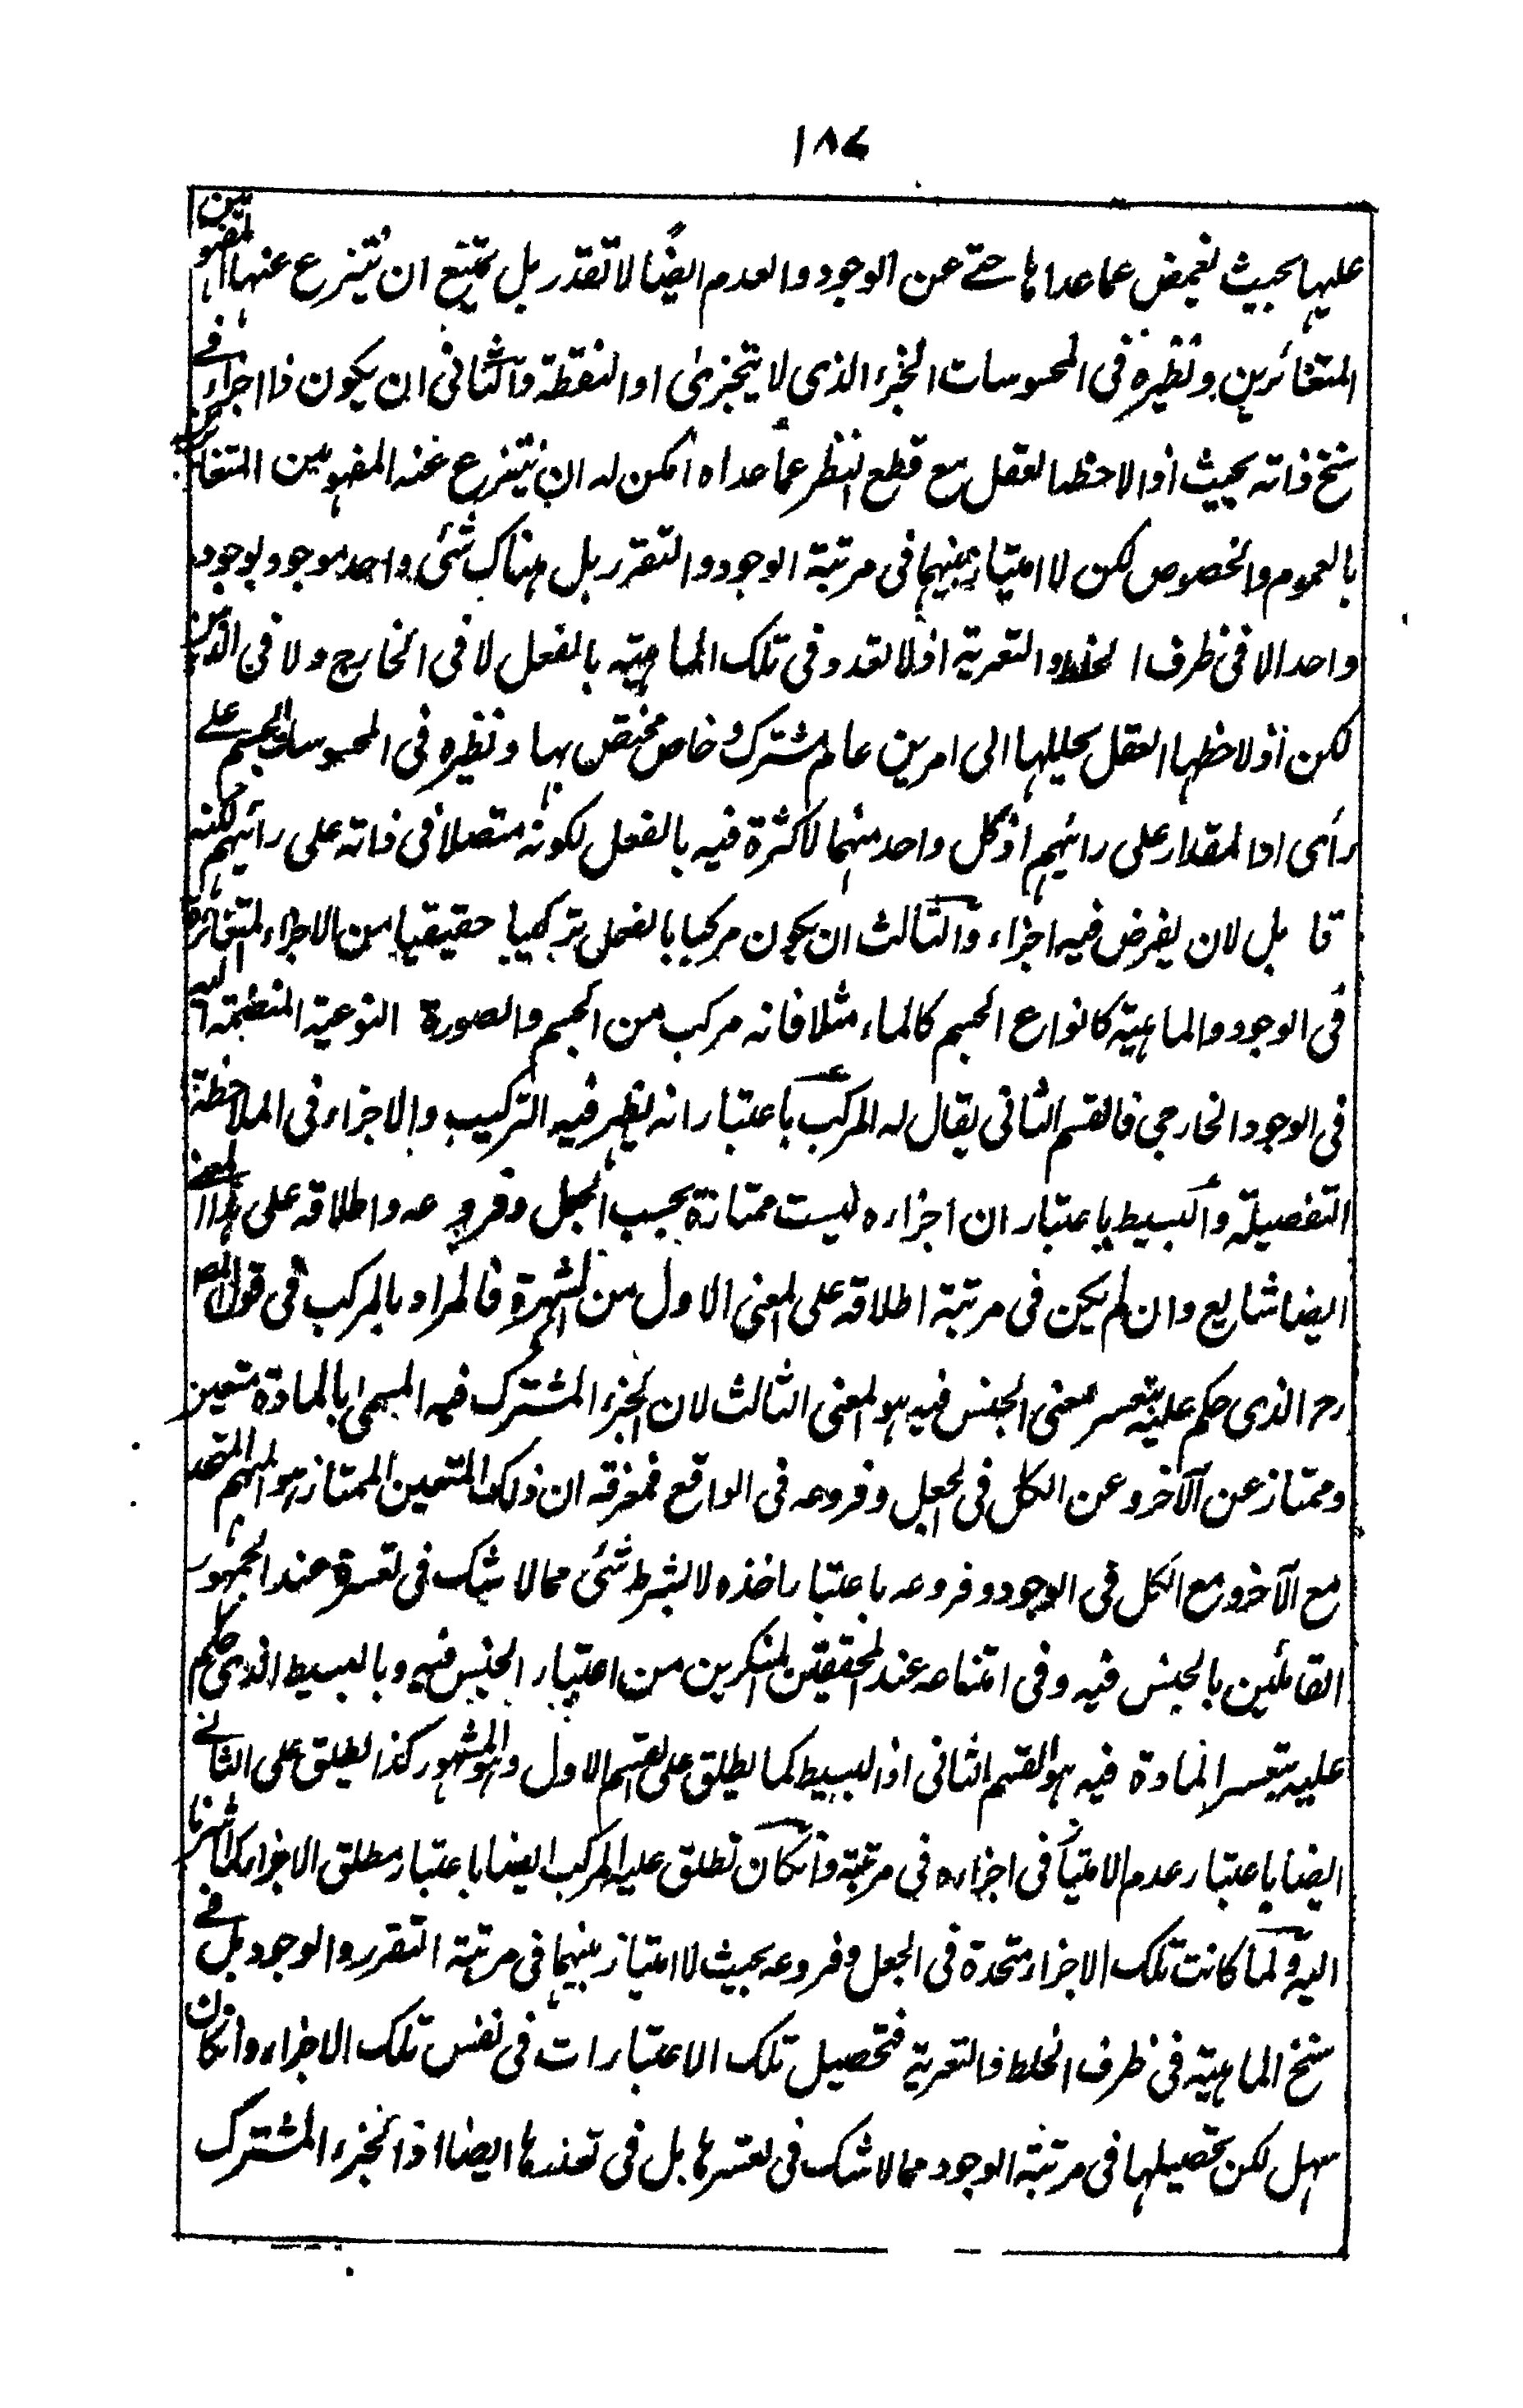 ١٨٧
عليها بحيث يغمض عما عداها حتى عن الوجود والعدم ايضًا لا تقدر بل يمتنع ان ينتزع عنها المفهومين
المتغائرين ونظيره فى المحسوسات الجزء الذى لا يتجزىٰ او النقطة والثانى ان يكون ذا اجزاء فى
سنخ ذاته بحيث اذا لاحظه العقل مع قطع النظر عما عداه امكن له ان ينتزع عنه المفهومين المتغائرين
بالعموم والخصوص لكن لا امتياز بينهما فى مرتبة الوجود والتقرر بل هناك شئى واحد موجود بوجود
واحد الا فى ظرف الخلط والتعرية اذ لا تعدد فى تلك الماهية بالفعل لا فى الخارج ولا فى الذهن
لكن اذ لاحظها العقل يحللها الى امرين عام مشترك وخاص مختص بها ونظيره فى المحسوسات الجسم على
رأى او المقدار على رائهم اذ كل واحد منهما لا كثرة فيه بالفعل لكونه متصلا فى ذاته على رائهم لكنه
قابل لان يفرض فيه اجزاء والثالث ان يكون مركبا بالفعل تركيبا حقيقيا من الاجزاء المتغائرة
فى الوجود والماهية كانواع الجسم كالماء مثلا فانه مركب من الجسم والصورة النوعية المنضمة اليه
فى الوجود الخارجى فالقسم الثانى يقال له المركب باعتبار انه يظهر فيه التركيب والاجزاء فى الملاحظة
التفصيلية والبسيط باعتبار ان اجزاءه ليست ممتازة بحسب الجعل وفروعه واطلاقه على هذا المعنى
ايضا شايع وان لم يكن فى مرتبة اطلاقه على المعنى الاول من الشهرة فالمراد بالمركب فى قول المص
رح الذى حكم عليه بتعسر معنى الجنس فيه هو المعنى الثالث لان الجزء المشترك فيه المسمى بالمادة متعين
وممتاز عن الآخر وعن الكل فى الجعل وفروعه فى الواقع فمعرفة ان ذلك المتعين الممتاز هو المبهم المتحد
مع الآخر ومع الكل فى الوجود وفروعه باعتبار اخذه لا بشرط شئى مما لا شك فى تعسره عند الجمهور
القائلين بالجنس فيه وفى امتناعه عند المحققين المنكرين من اعتبار الجنس فيه وبالبسيط الذى حكم
عليه بتعسر المادة فيه هو القسم الثانى اذ البسيط كما يطلق على القسم الاول وهو المشهور كذا يطلق على الثانى
ايضا باعتبار عدم الامتياز فى اجزاءه فى مرتبة وانكان تطلق عليه المركب ايضا باعتبار مطلق الاجزاء كما اشرنا
اليه ولما كانت تلك الاجزاء متحدة فى الجعل وفروعه بحيث لا امتياز بينهما فى مرتبة التقرر والوجود بل فى
سنخ الماهية فى ظرف الخلط والتعرية فتحصيل تلك الاعتبارات فى نفس تلك الاجزاء وانكان
سهل لكن تحصيلها فى مرتبة الوجود مما لا شك فى تعسرها بل فى تعذرها ايضا اذ الجزء المشترك